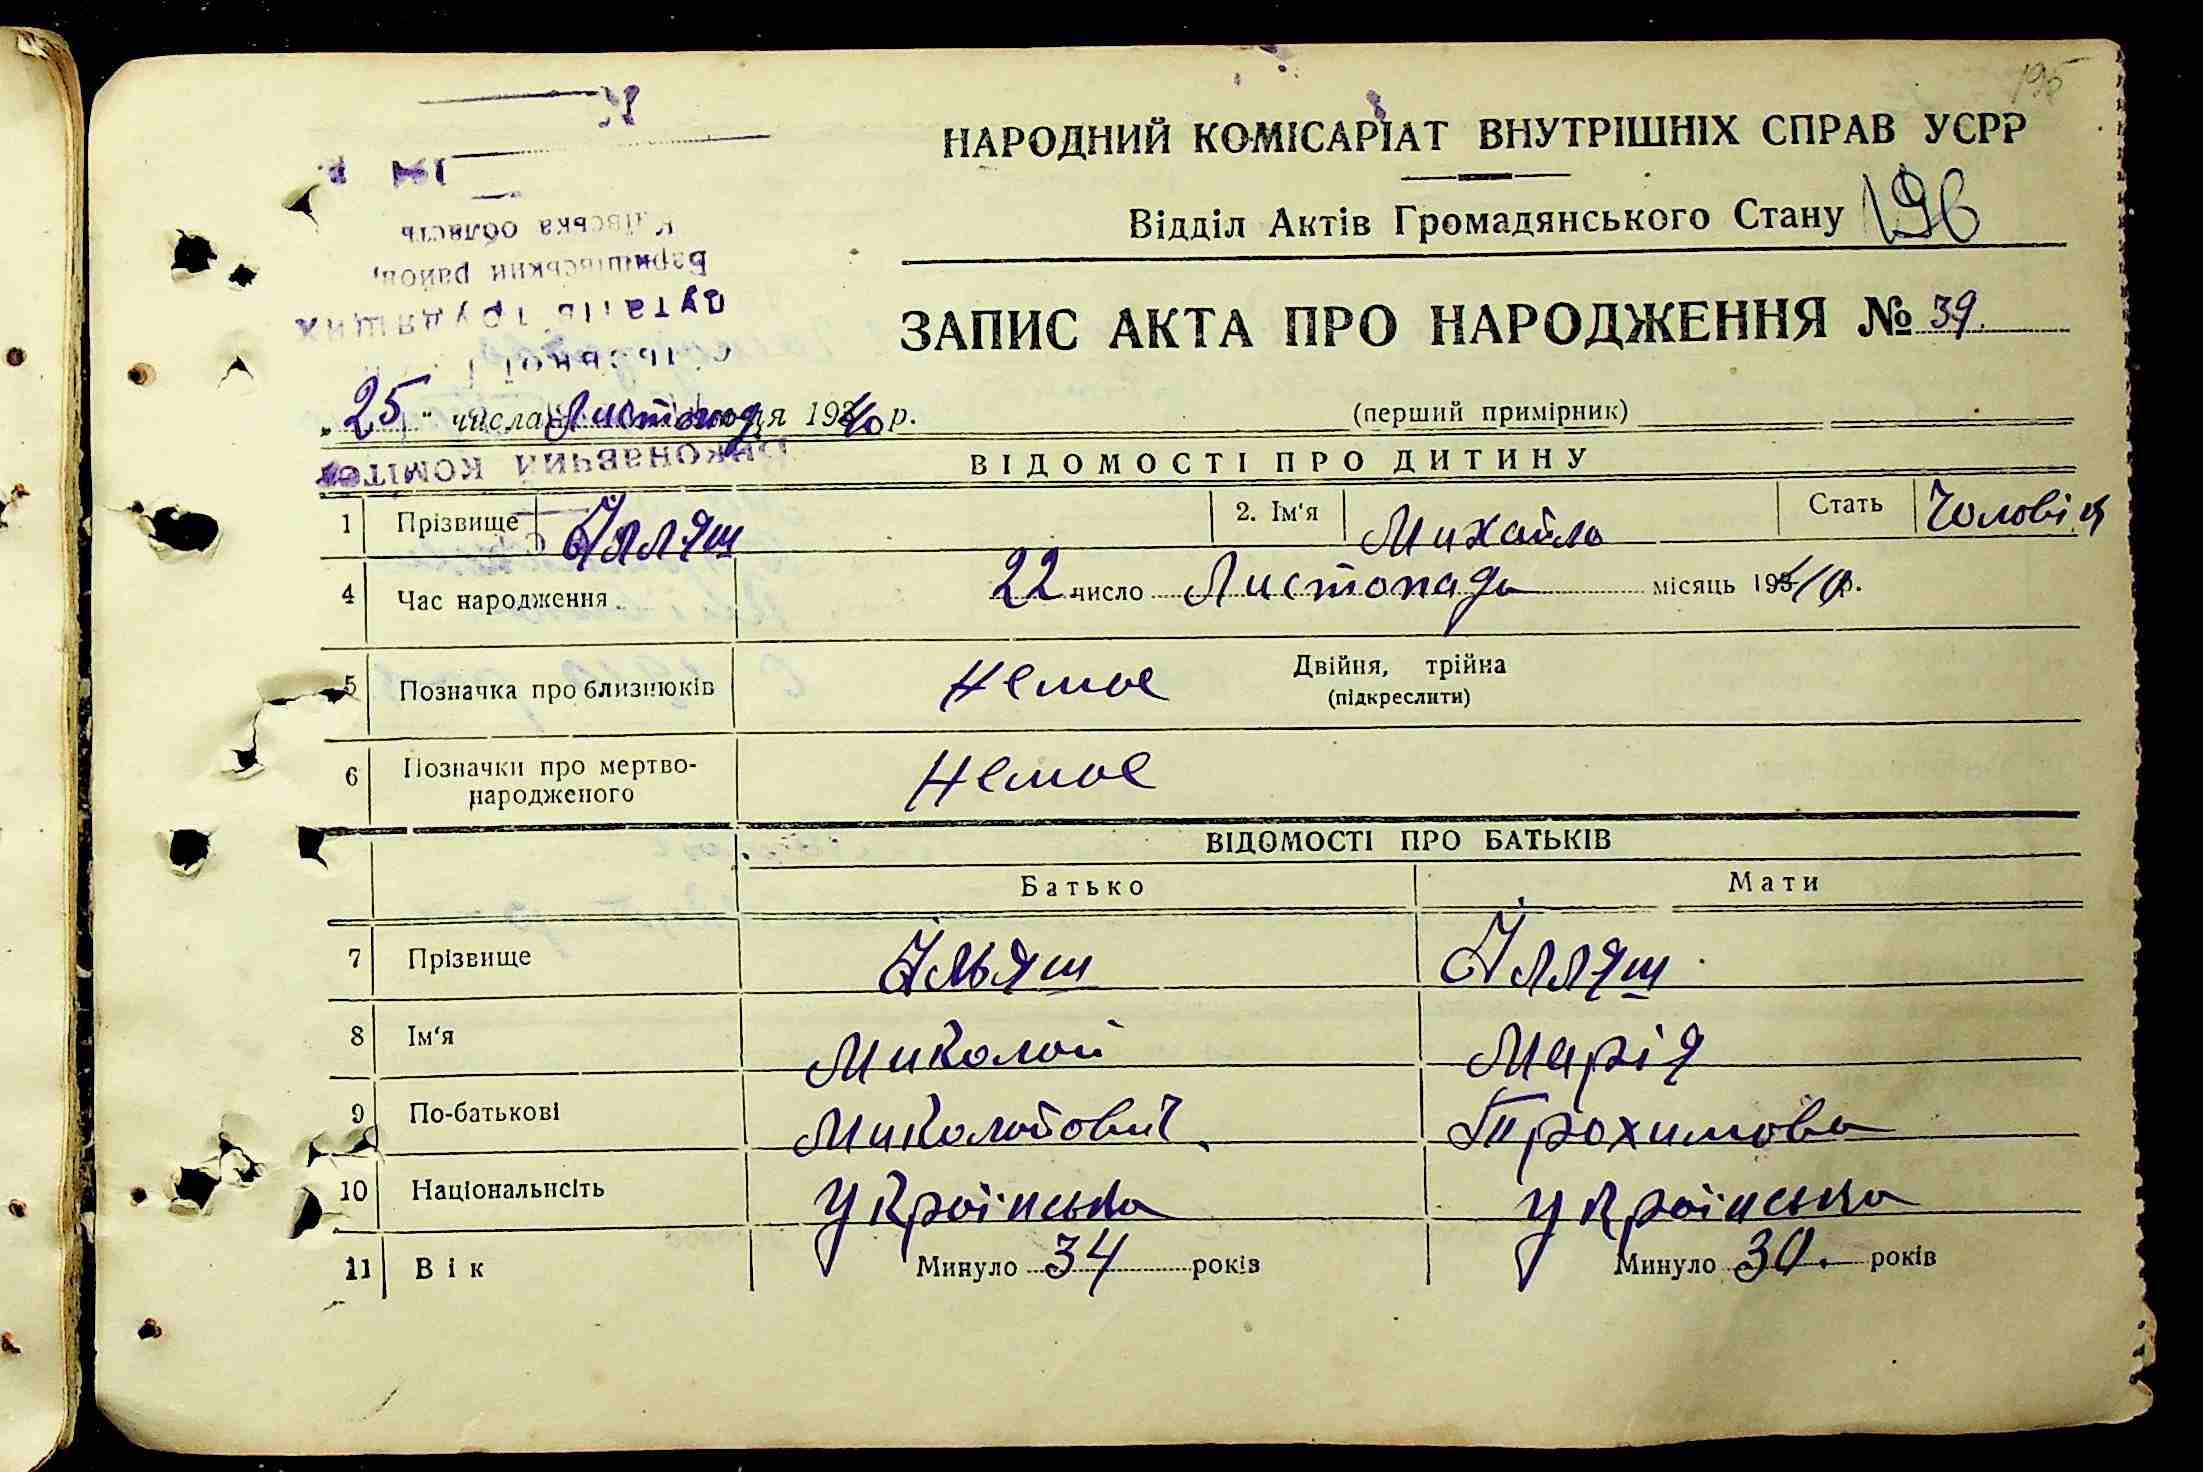 195
НАРОДНИЙ КОМІСАРІАТ ВНУТРІШНІХ СПРАВ УСРР
Відділ Актів Громадянського Стану 196
ЗАПИС АКТА ПРО НАРОДЖЕННЯ № 39.
Київська область
Баришівський район,
путатів трудящих
сільської
„25" числа Листопад місяця 1940 р. (перший примірник)
Виконавчий комітет
ВІДОМОСТІ ПРО ДИТИНУ
1 Прізвище Ілляш 2. Ім'я Михайло Стать Чоловіч
4 Час народження 22 число Листопада місяць 1940 р.
5 Позначка про близнюків Немає Двійня, трійна
(підкреслити)
6 Позначки про мертво-
народженого Немає
ВІДОМОСТІ ПРО БАТЬКІВ
Батько Мати
7 Прізвище Ільяш Ілляш
8 Ім'я Миколай Марія
9 По-батькові Миколайович Трохимова
10 Національнсіть Українська Українська
11 Вік Минуло 34 років Минуло 30. років